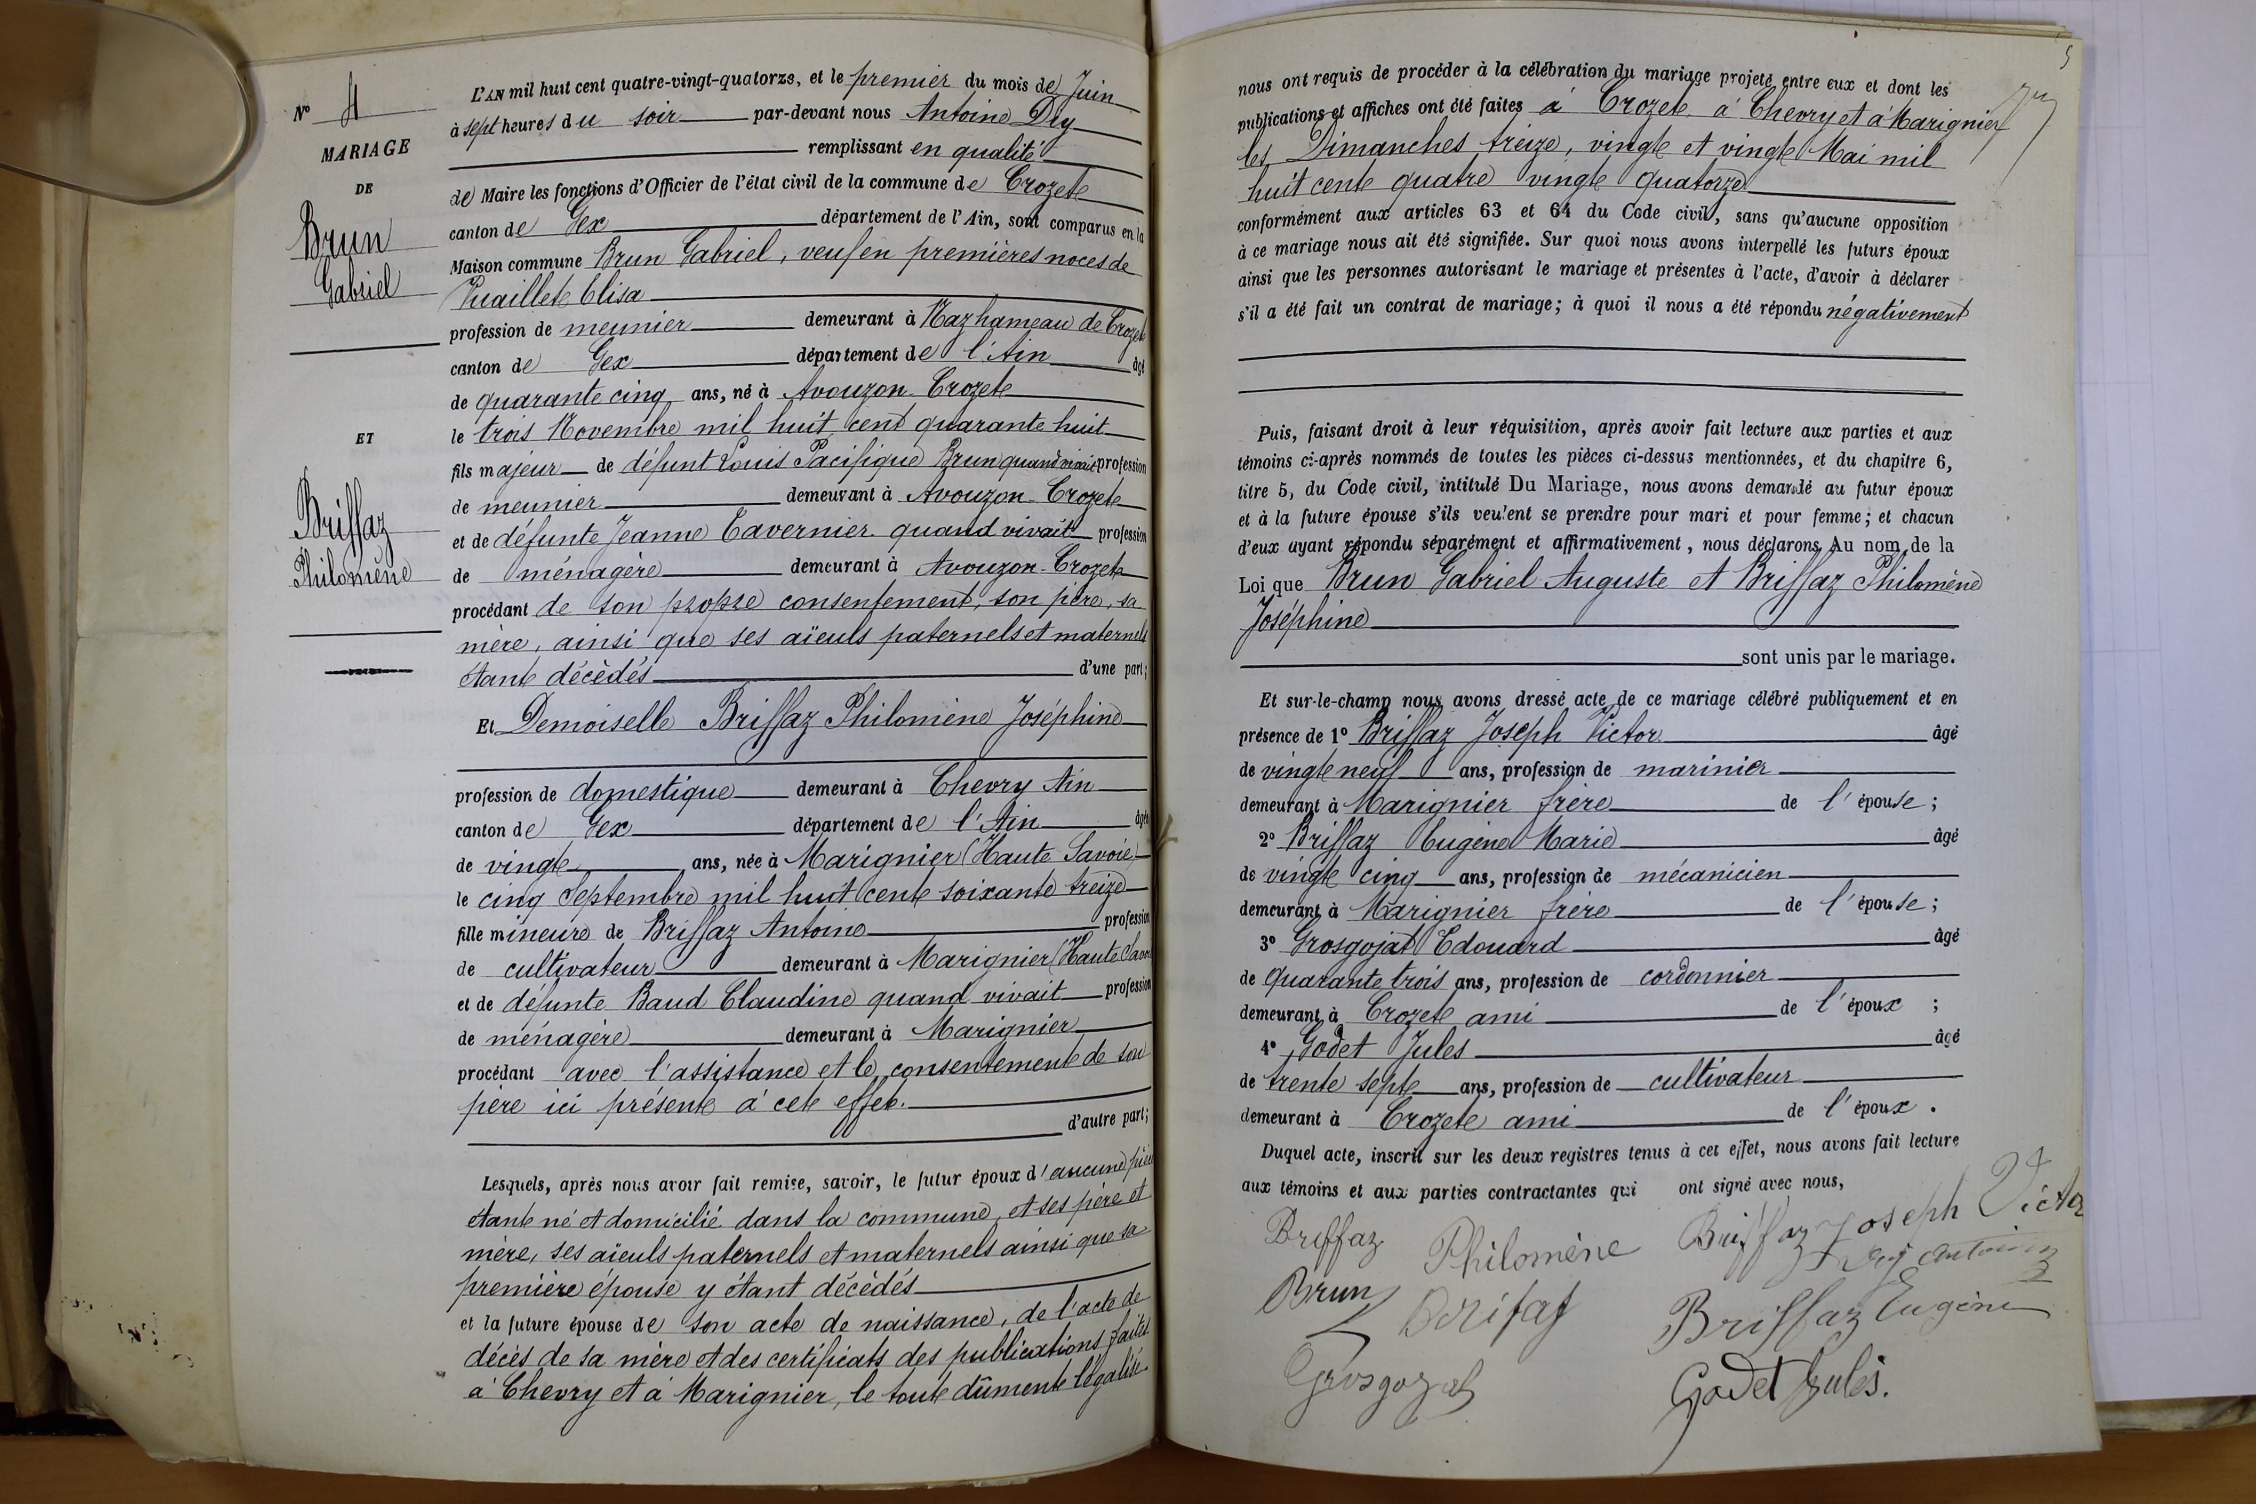 N° 4
MARIAGE
DE
Brun
Gabriel
ET
Briffaz
Philomène
L'AN mil huit cent quatre-vingt-quatorze, et le premier du mois de Juin
à sept heures du soir par-devant nous Antoine Dry
remplissant en qualité
de Maire les fonctions d'Officier de l'état civil de la commune de Crozet
canton de Gex département de l'Ain, sont comparus en la
Maison commune Brun Gabriel, veuf en premières noces de
Puaillet Elisa
profession de meunier demeurant à Naz hameau de Crozet
canton de Gex département de l'Ain âgé
de quarante cinq ans, né à Avouzon-Crozet
le trois Novembre mil huit cent quarante huit
fils majeur de défunt Louis Pacifique Brun quand vivait profession
de meunier demeurant à Avouzon-Crozet
et de défunte Jeanne Tavernier quand vivait profession
de ménagère demeurant à Avouzon-Crozet
procédant de son propre consentement, son père, sa
mère, ainsi que ses aïeuls paternels et maternels
étant décédés d'une part;
Et Demoiselle Briffaz Philomène Joséphine
profession de domestique demeurant à Chevry Ain
canton de Gex département de l'Ain âgée
de vingt ans, née à Marignier (Haute Savoie)
le cinq Septembre mil huit cent soixante treize
fille mineure de Briffaz Antoine profession
de cultivateur demeurant à Marignier (Haute Savoie
et de défunte Baud Claudine quand vivait profession
de ménagère demeurant à Marignier
procédant avec l'assistance et le consentement de son
père ici présent à cet effet.
d'autre part;
Lesquels, après nous avoir fait remise, savoir, le futur époux d'aucune pièce
étant né et domicilié dans la commune, et ses père et
mère, ses aïeuls paternels et maternels ainsi que sa
première épouse y étant décédés
et la future épouse de son acte de naissance, de l'acte de
décès de sa mère et des certificats des publications faites
à Chevry et à Marignier, le tout dûment légalisé
5
nous ont requis de procéder à la célébration du mariage projeté entre eux et dont les
publications et affiches ont été faites à Crozet à Chevry et à Marignier
les Dimanches treize, vingt et vingt Mai mil
huit cent quatre vingt quatorze
conformément aux articles 63 et 64 du Code civil, sans qu'aucune opposition
à ce mariage nous ait été signifiée. Sur quoi nous avons interpellé les futurs époux
ainsi que les personnes autorisant le mariage et présentes à l'acte, d'avoir à déclarer
s'il a été fait un contrat de mariage; à quoi il nous a été répondu négativement
Puis, faisant droit à leur réquisition, après avoir fait lecture aux parties et aux
témoins ci-après nommés de toutes les pièces ci-dessus mentionnées, et du chapitre 6,
titre 5, du Code civil, intitulé Du Mariage, nous avons demandé au futur époux
et à la future épouse s'ils veulent se prendre pour mari et pour femme; et chacun
d'eux ayant répondu séparément et affirmativement, nous déclarons Au nom de la
Loi que Brun Gabriel Auguste et Briffaz Philomène
Joséphine
sont unis par le mariage.
Et sur-le-champ nous avons dressé acte de ce mariage célébré publiquement et en
présence de 1° Briffaz Joseph Victor âgé
de vingt neuf ans, profession de marinier
demeurant à Marignier frère de l'épouse;
2° Briffaz Eugène Marie âgé
de vingt cinq ans, profession de mécanicien
demeurant à Marignier frère de l'épouse;
3° Grosgojat Edouard âgé
de quarante trois ans, profession de cordonnier
demeurant à Crozet ami de l'époux;
4° Godet Jules âgé
de trente sept ans, profession de cultivateur
demeurant à Crozet ami de l'époux.
Duquel acte, inscrit sur les deux registres tenus à cet effet, nous avons fait lecture
aux témoins et aux parties contractantes qui ont signé avec nous,
Briffaz Philomène Briffaz Joseph Victor
Dry Antoine
Brun Brifaf Briffaz Eugène
Grosgozat Godet Jules.